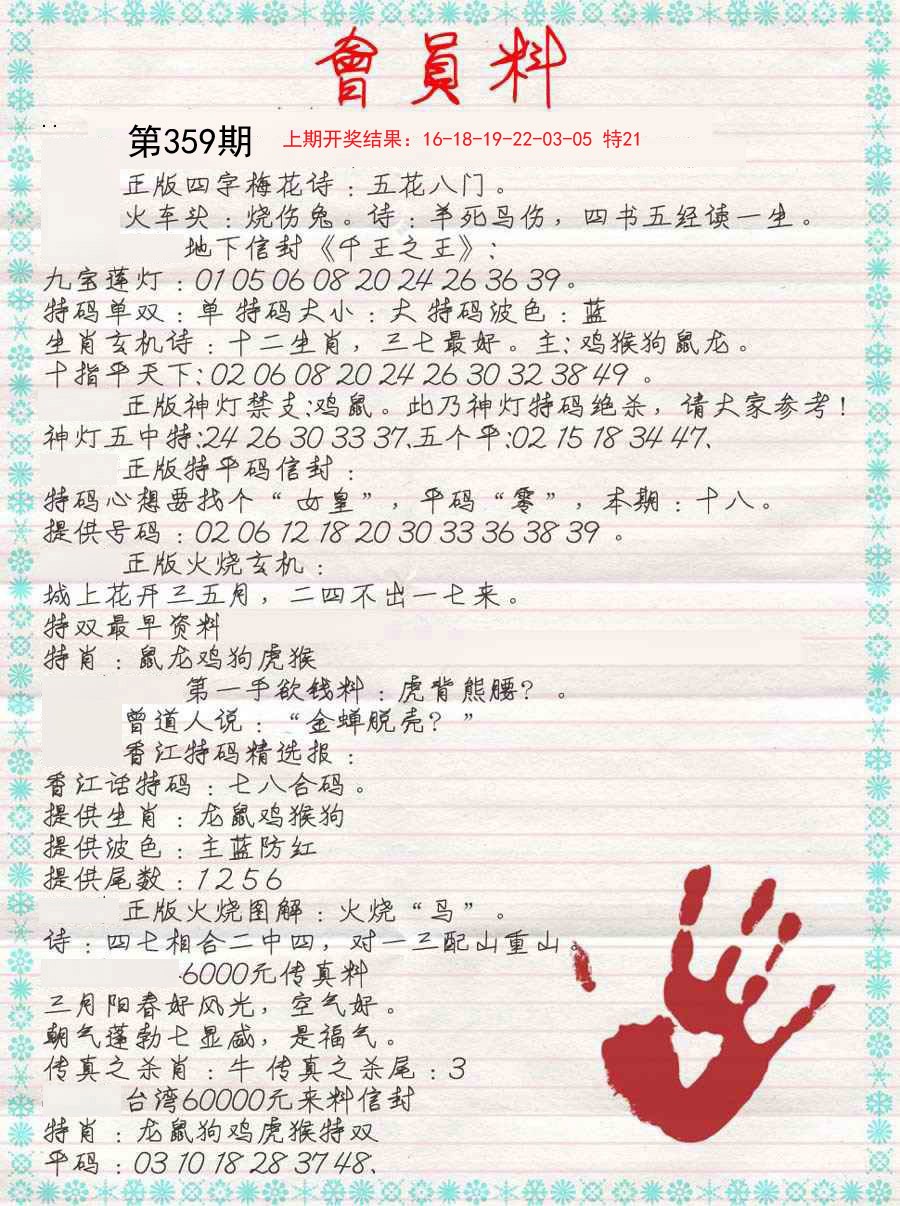 會員料
第359期 上期开奖结果：16-18-19-22-03-05 特21
正版四字梅花诗：五花八门。
火车头：烧伤兔。诗：羊死鸟伤，四书五经读一生。
地下信封《千王之王》：
九宝莲灯：01 05 06 08 20 24 26 36 39。
特码单双：单 特码大小：大 特码波色：蓝
生肖玄机诗：十二生肖，三七最好。主：鸡猴狗鼠龙。
十指平天下：02 06 08 20 24 26 30 32 38 49 。
正版神灯禁支：鸡鼠。此乃神灯特码绝杀，请大家参考！
神灯五中特：24 26 30 33 37.五个平：02 15 18 34 47.
正版特平码信封：
特码心想要找个“ 女皇”，平码“零”，本期：十八。
提供号码：02 06 12 18 20 30 33 36 38 39 。
正版火烧玄机：
城上花开三五月，二四不出一七来。
特双最早资料
特肖：鼠龙鸡狗虎猴
第一手欲钱料：虎背熊腰？。
曾道人说：“金蝉脱壳？”
香江特码精选报：
香江话特码：七八合码。
提供生肖：龙鼠鸡猴狗
提供波色：主蓝防红
提供尾数：1 2 5 6
正版火烧图解：火烧“鸟”。
诗：四七相合二中四，对一三配山重山。
6000元传真料
三月阳春好风光，空气好。
朝气蓬勃七显威，是福气。
传真之杀肖：牛 传真之杀尾：3
台湾60000元来料信封
特肖：龙鼠狗鸡虎猴特双
平码：03 10 18 28 37 48.